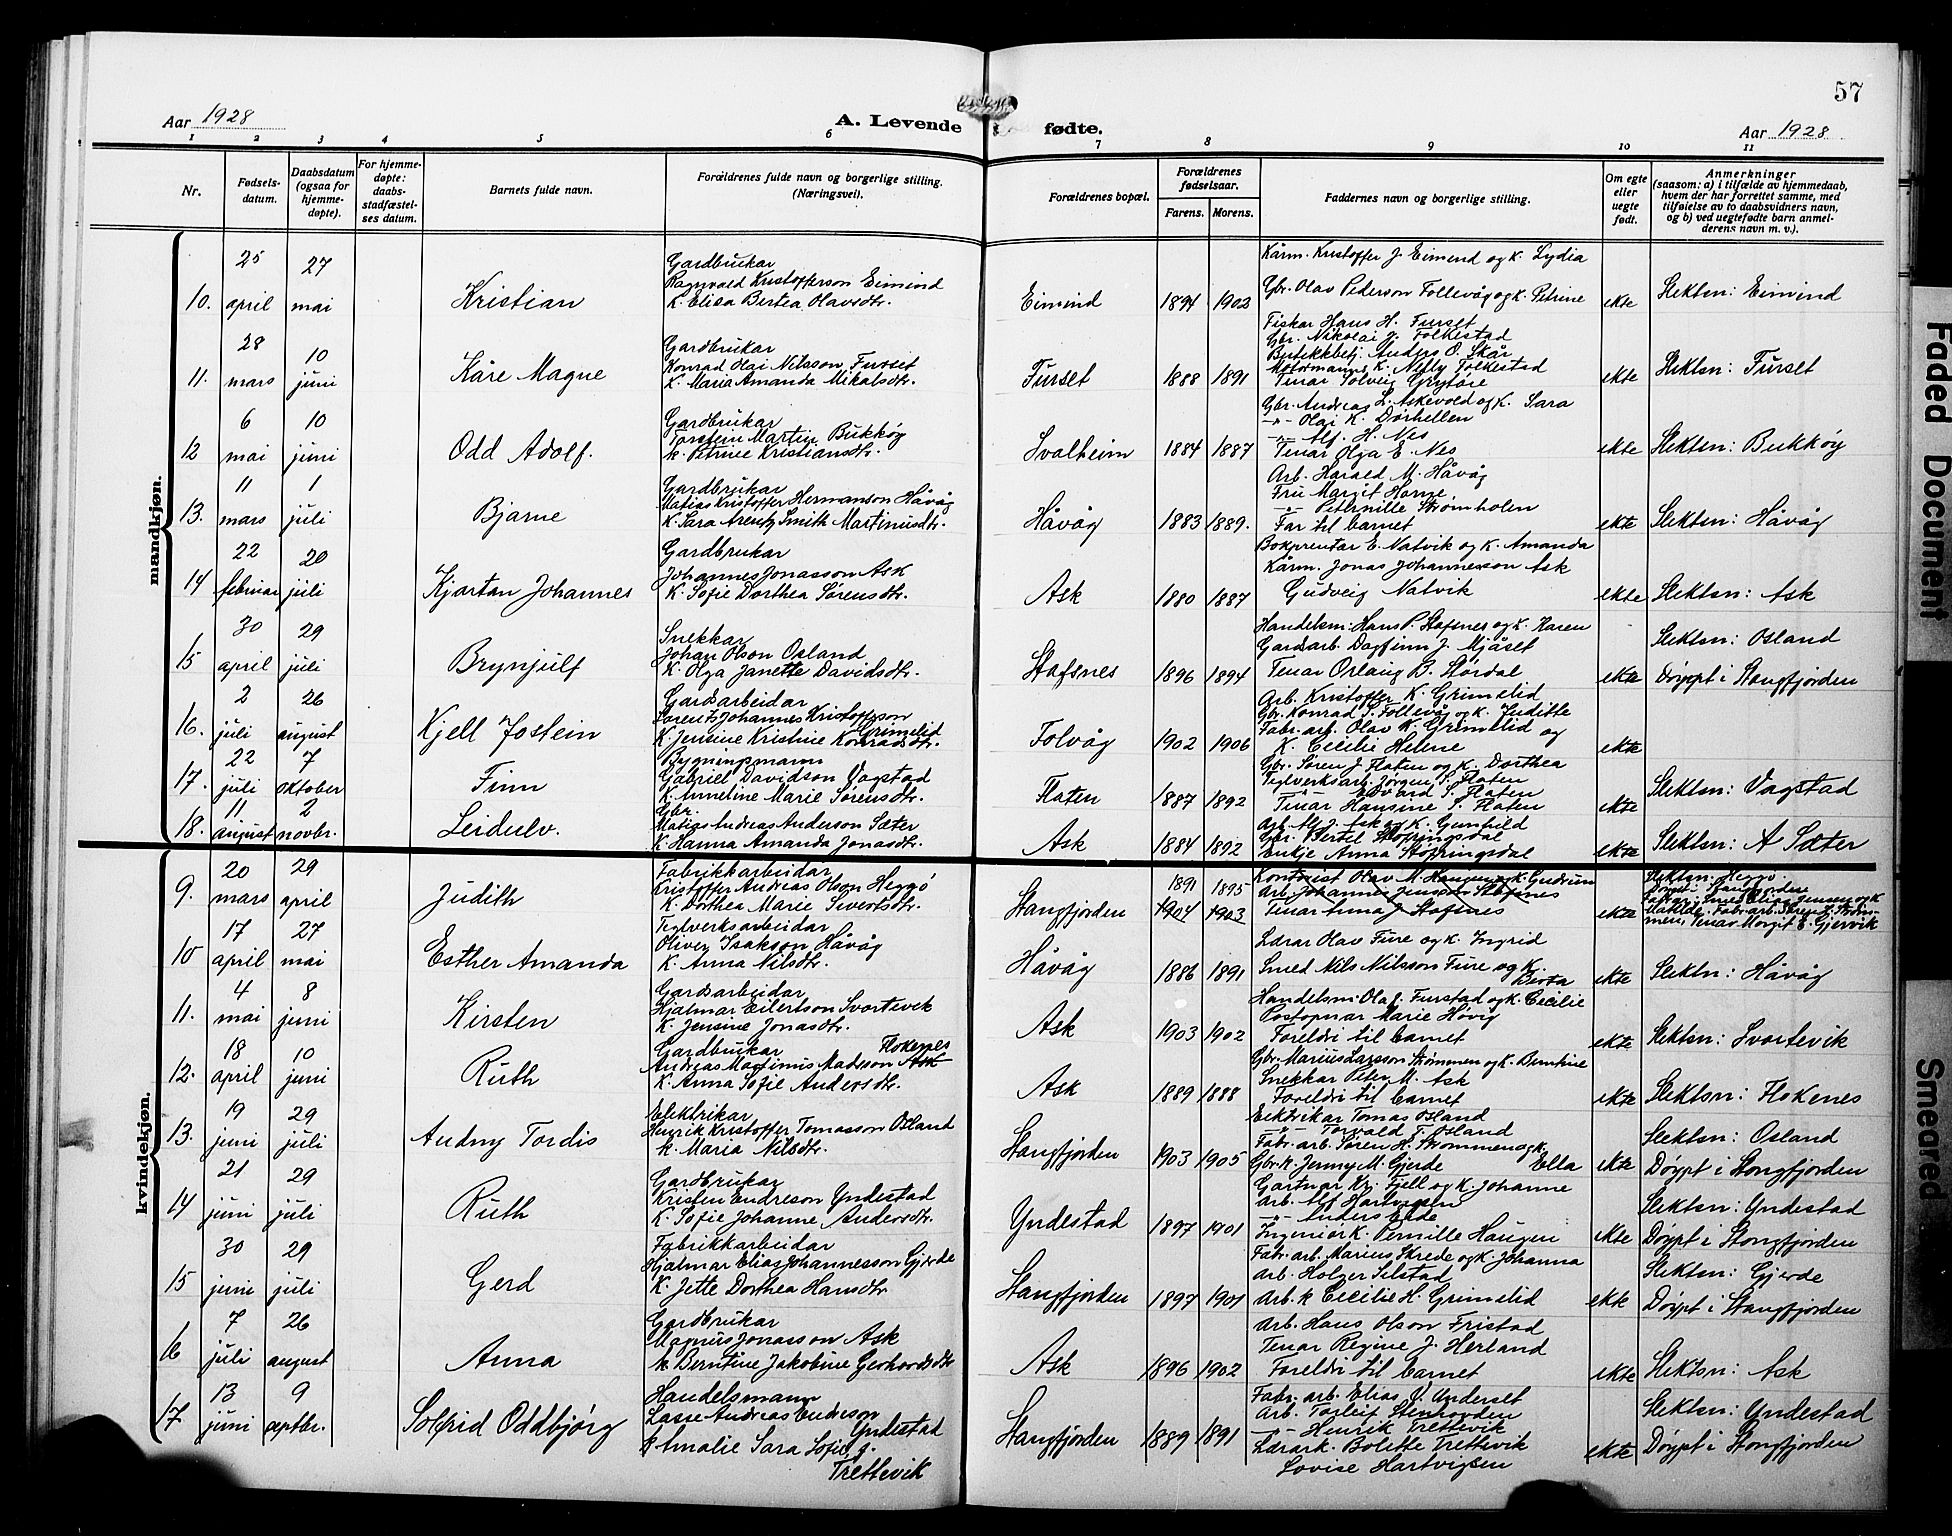 57
Aar 1928
A. Levende fødte.
Aar 1928
1 2 3 4 5 6 7 8 9 10 11
Nr.
Fødsels-
datum.
Daabsdatum
(ogsaa for
hjemme-
døpte).
For hjemme-
døpte:
daabs-
stadfæstel-
ses datum.
Barnets fulde navn.
Forældrenes fulde navn og borgerlige stilling.
(Næringsvei).
Forældrenes bopæl.
Forældrenes
fødselsaar.
Farens. Morens.
Faddernes navn og borgerlige stilling.
Om egte
eller
uegte
født.
Anmerkninger
(saasom: a) i tilfælde av hjemmedaab,
hvem der har forrettet samme, med
tilføielse av to daabsvidners navn,
og b) ved uegtefødte barn anmel-
derens navn m. v.).
mandkjøn.
10.
25
april
27
mai
Kristian
Gardbrukar
Ragnvald Kristofferson Eimind
K. Elisa Bertea Olavsdtr.
Eimind
1894 1903
Kårm. Kristoffer J. Eimind og K. Lydia
Gbr. Olav Pederson Follevåg og K. Petrine
ekte
Slektsn: Eimind
11.
28
mars
10
juni
Kåre Magne
Gardbrukar
Konrad Olai Nilsson Furset
K. Maria Amanda Mikalsdtr.
Furset
1888 1891
Fiskar Hans H. Furset
Gbr. Nikolai J. Folkestad
Butikkbetj. Anders O. Skår
Motormann K. Nelly Folkestad
Tenar Solveig Grytøre
ekte
Slektsn: Furset
12
6
mai
10
juni
Odd Adolf.
Gardbrukar
Torstein Martin Bukkøy
K. Petrine Kristiansdtr.
Svalheim
1884 1887
Gbr. Andreas L. Askevold og K. Sara
-"- Olai K. Dørhellen
-"- Alf. H. Nes
Tenar Olga E. Nes
ekte
Slektsn: Bukkøy
13.
11
mars
1
juli
Bjarne
Gardbrukar
Matias Kristoffer Hermanson Håvåg
K. Sara Arentz Smith Martinusdtr.
Håvåg
1883 1889.
Arb. Harald M. Håvåg
Fru Margit Horne
-"- Peternille Strømholen
Far til barnet
ekte
Slektsn: Håvåg
14
22
februar
20
juli
Kjartan Johannes
Gardbrukar
Johannes Jonasson Ask
K. Sofie Dorthea Sørensdtr.
Ask
1880 1887
Bokprentar E. Natvik og K. Amanda
Kårm. Jonas Johannesson Ask
Gudveig Natvik
ekte
Slektsn: Ask
15
30
april
29
juli
Brynjulf
Snekkar
Johan Olson Osland
K. Olga Janette Davidsdtr.
Stafsnes
1896 1894
Handelsm. Hans P. Stafsnes og K. Karen
Gardarb. Dagfinn J. Mjåset
Tenar Oslaug B. Størdal
ekte
Slektsn: Osland
Døypt i Stangfjorden
16.
2
juli
26
august
Kjell Jostein
Gardsarbeidar
Lorentz Johannes Kristofferson
Grimelid
K. Jensine Kristine Konradsdtr.
Folvåg
1902 1906
Arb. Kristoffer K. Grimelid
Gbr. Konrad S. Follevåg og K. Juditte
Fabr. arb. Olav K. Grimelid og
K. Cecilie Helene
ekte
17.
22
juli
7
oktober
Finn
Bygningsmann
Gabriel Davidson Vagstad
K. Anneline Marie Sørensdtr.
Flaten
1887 1892
Gbr. Søren J. Flaten og K. Dorthea
Teglverksarb. Jørgen S. Flaten
-"- Edvard S. Flaten
Tenar Hansine S. Flaten
ekte
Slektsn: Vagstad
18.
11
august
2
novbr.
Leidulv.
Gbr.
Matias Andreas Anderson Sæter
K. Hanna Amanda Jonasdtr.
Ask
1884 1892
Arb. Alf J. Ask og K. Gunhild
Gbr. Bertel Støfringsdal
Enkje Anna Støfringsdal
ekte
Slektsn: A Sæter
kvindekjøn.
9.
20
mars
29
april
Judith
Fabrikkarbeidar
Kristoffer Andreas Olson Heggø
K. Dorthea Marie Sivertsdtr.
Stangfjorden
1891 1895
1904 1903
Kontorist Olav M. Haugen og K. Gudrun
Arb. Johannes Jensson Stafsnes
Tenar Anna J. Stafsnes
ekte
Slektsn: Heggø.
Døypt i Stangfjorden
Matilde, Fabr. arb. Søren J. Strøm-
men, Tenar Margit E. Gjervik
10
17
april
27
mai
Esther Amanda
Teglverksarbeidar
Oliver Isakson Håvåg
K. Anna Nilsdtr.
Håvåg
1886 1891
Lærar Olav Fure og K. Ingrid
Smed Nils Nilsson Fure og K.
Berta
ekte
Slektn: Håvåg
11.
4
mai
8
juni
Kirsten
Gardsarbeidar
Hjalmar Eilertson Svortevik
K. Jensine Jonasdtr.
Ask
1903 1902
Handelsm. Olaf Furstad og K. Cecilie
Postopnar Marie Høvig
Foreldri til barnet
ekte
Slektsn: Svortevik
12.
18
april
10
juni
Ruth
Gardbrukar Flokenes
Andreas Martinus Madsson Ask
K. Anna Sofie Andersdtr.
Ask
1889 1888
Gbr. Marius Larsson Strømmen og K. Berntine
Snekkar Peter M. Ask
Foreldri til barnet
ekte
Slektsn: Flokenes
13.
19
juni
29
juli
Audny Tordis
Elektrikar
Henrik Kristoffer Tomasson Osland
K. Maria Nilsdtr.
Stangfjorden
1903 1905
Elektrikar Tomas Osland
-"- Torvald T. Osland
Fabr. arb. Søren H. Strømmen og K.
Gbr. K. Jenny M. Gjerde Ella
ekte
Slektsn: Osland
Døypt i Stongfjorden
14
21
juni
29
juli
Ruth
Gardbrukar
Kristen Endreson Yndestad
K. Sofie Johanne Andersdtr.
Yndestad
1897 1901
Gartnar Kr. Fjell og K. Johanne
Arb. Alf Hartvigsen
-"- Anders Eide
Ingeniør K. Pernille Haugen
ekte
Slektsn: Yndestad
Døypt i Stongfjorden
15
30
juni
29
juli
Gerd
Fabrikkarbeidar
Hjalmar Elias Johannesson Gjerde
K. Jette Dorthea Hansdtr
Stangfjorden
1897 1901
Fabr. arb. Marius Skrede og K. Johanna
Arb. Holger Silstad
Arb. K Cecilie H. Grimelid
ekte
Slektsn: Gjerde
Døypt i Stangfjorden
16
7
juli
26
august
Anna
Gardbrukar
Magnus Jonasson Ask
K Berntine Jakobine Gerhardsdtr
Ask
1896 1902
Arb. Hans Olson Fristad
Tenar Regine J. Herland
Foreldri til barnet
ekte
Slektsn: Ask
17.
13
juni
9
septbr.
Solfrid Oddbjørg
Handelsmann
Lasse Andreas Endreson
Yndestad
K. Amalie Sara Sofie g.
Trettevik
Stangfjorden
1889 1891
Fabr. arb. Elias V. Underset
Arb. Torleif Stenhovden
-"- Henrik Trettevik
Lærark. Bolette Trettevik
Lovise Hartvigsen
ekte
Slektsn: Yndestad
Døypt i Stongfjorden
Faded Document
Smeared